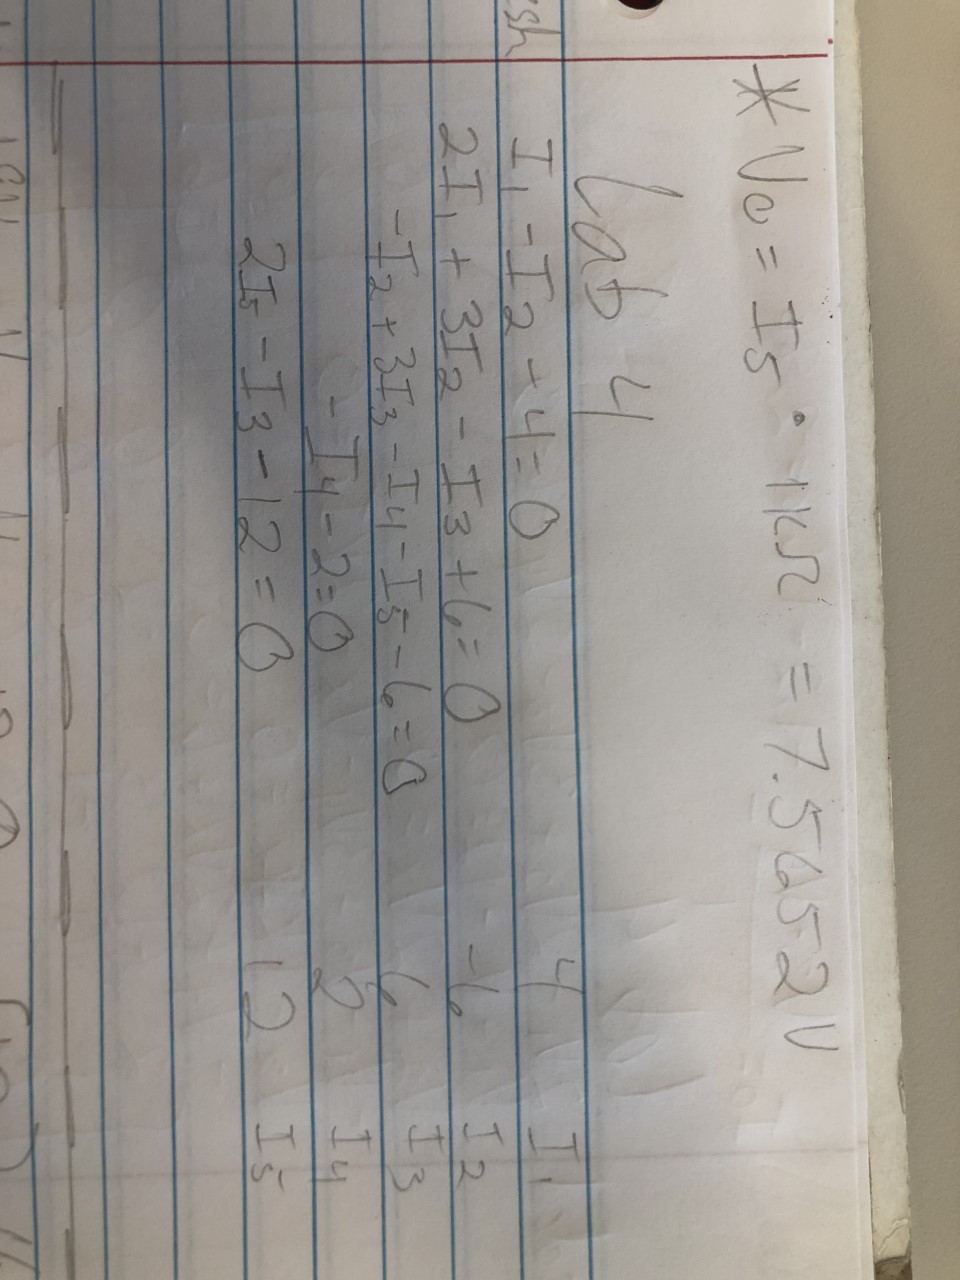 * Vo = I5 · 1kΩ = 7.5652V
Lab 4
I1 - I2 + 4 = 0 4 I1
2I1 + 3I2 - I3 + 6 = 0 -6 I2
-I2 + 3I3 - I4 - I5 - 6 = 0 6 I3
- I4 - 2 = 0 2 I4
2I5 - I3 - 12 = 0 12 I5